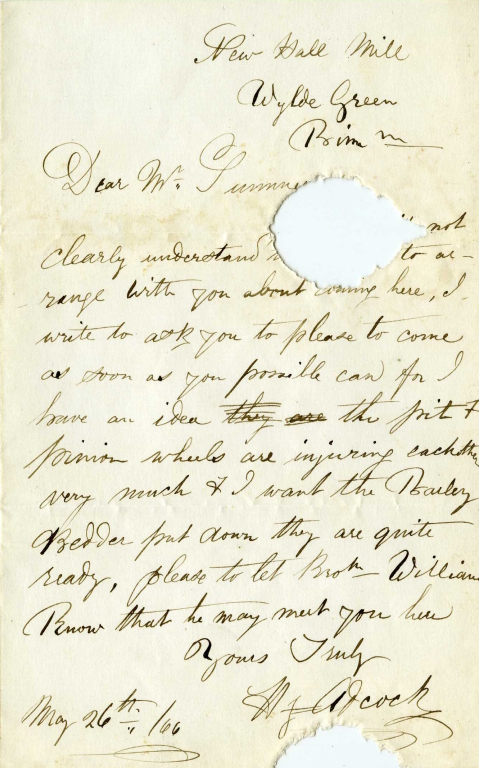 New Hall Mill
Wylde Green
Birm m
Dear Mr. Sumne
not
clearly understand to ar-
range with you about coming here, I
write to ask you to please to come
as soon as you possible can for I
have an idea they are the pit &
pinion wheels are injuring each other
very much & I want the Barley
Bedder put down they are quite
ready, please to let Broth William
Know that he may meet you here
Yours Truly
Hy Adcock
May 26th /66